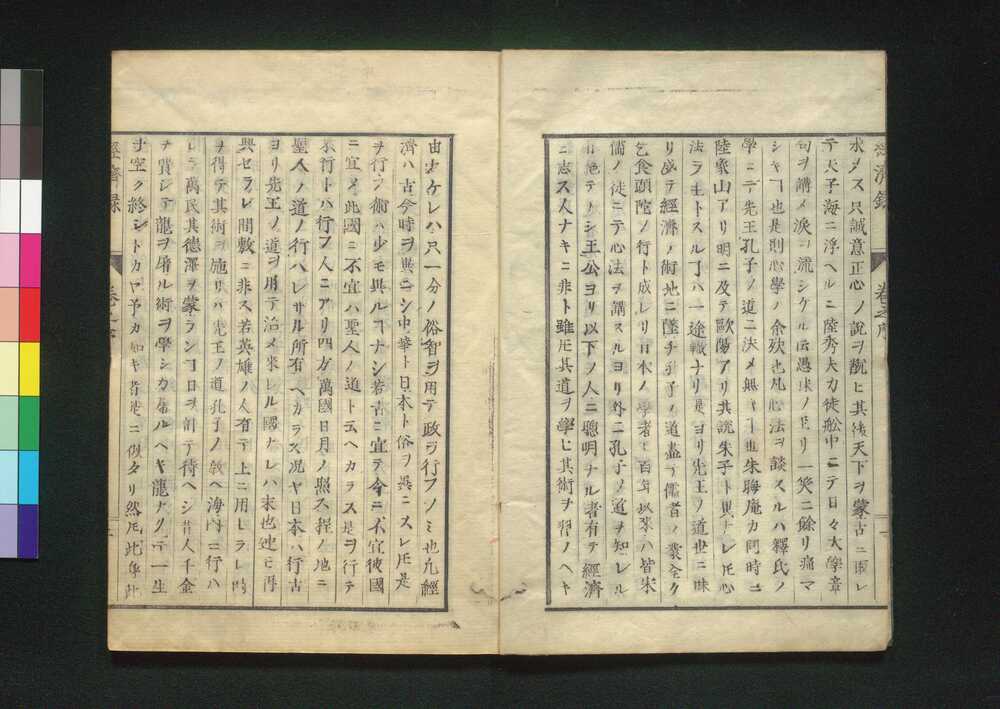 求メス只誠意正心ノ説ヲ説ヒ其後天下ヲ蒙古ニ奪レ
テ天子海ニ浮ヘルニ陸秀夫カ徒舩中ニテ日々大學章
句ヲ講メ涙ヲ流シケル𪜈愚昧ノ至リ一笑ニ餘リ痛マ
シキヿ也是則心學ノ余殃也凡心法ヲ談スルハ釋氏ノ
學ニテ先王孔子ノ道ニ决メ無キヿ也朱晦庵カ同時ニ
陸象山アリ明ニ及テ歐陽アリ其説朱子ト異ナレ𪜈心
法ヲ主トスルヿハ一途轍ナリ是ヨリ先王ノ道世ニ昧
リ盛テ經濟ノ術地ニ墜チ孔子ノ道盡テ儒者ノ業全ク
乞食頭陀ノ行ト成レリ日本ノ學者モ百年以來ハ皆宋
儒ノ徒ニテ心法ヲ講スルヨリ外ニ孔子ノ道ヲ知レル
絶テノシ王公ヨリ以下ノ人ニ聰明ナル者有テ經濟
ニ志ス人ナキニ非ト雖𪜈其道ヲ學ヒ其術ヲ習ノヘキ
經濟録
卷之序
由ナケレハ只一分ノ俗智ヲ用テ政ヲ行フノミ也凡經
濟ハ古今時ヲ異ニシ中華ト日本ト俗ヲ異ニスレ𪜈是
ヲ行フノ術ハ少モ異ルヿナシ若古ニ宜テ今ニ不宜彼國
ニ宜メ此國ニ不宜ハ聖人ノ道ト云ヘカラス是ヲ行テ
不行トハ行フ人ニアリ四方萬國日月ノ照ス程ノ地ニ
聖人ノ道ノ行ハレサル所有ヘカラス况ヤ日本ハ行古
ヨリ先王ノ道ヲ用テ治メ來レル國ナレハ末也迚モ再
興セラレ間敷ニ非ス若英雄ノ人有テ上ニ用レラレ時
ヲ得テ其術ヲ施リハ先王ノ道孔子ノ敎ヘ海內ニ行ハ
レテ萬民其德澤ヲ蒙ランヿ日ヲ刻テ待ヘシ昔人千金
ヲ費レテ龍ヲ屠ル術ヲ學シカ屠ルヘキ龍ナクテ一生
ヲ空ク終シトカヤ予カ如キ者是ニ似タリ然𪜈此年此
經濟録
卷之序